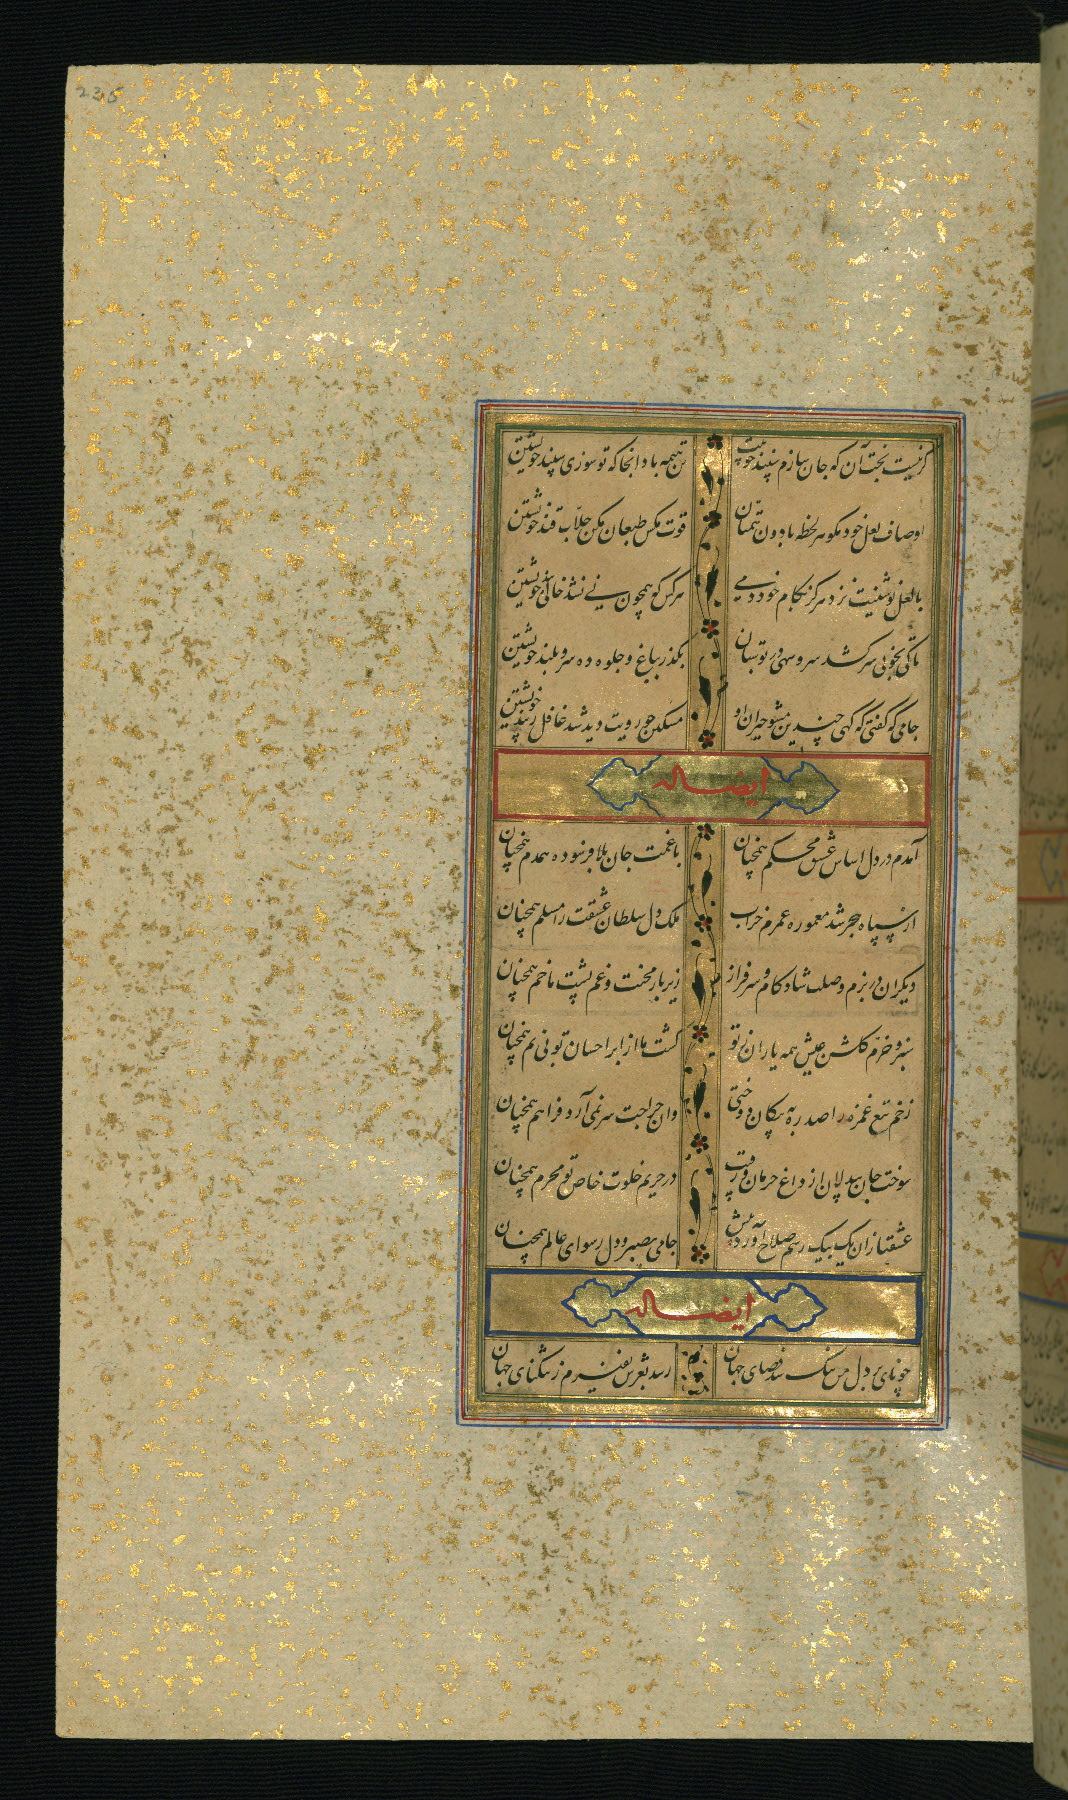 235
گر نیست بختآن که جان سازم سپند خویشت تن تیمه باد آنجا که تو سوزی سپند خویشتن
اوصاف لعل خود مکو هر لحظه با دون همتان قوت مکس طبعان مکن جلاب قند خویشتن
با لعل نوشینت نزد هرگز بکام خود دمی هر کس که همچون نی نشد خالی ز بند خویشتن
تا کی بخوبی سر کشد سرو سهی در بوستان بگذر بباغ و جلوه ده سرو بلند خویشتن
جامی که گفتی که کهی چندین مشو حیران او مسکین چو رویت دید شد غافل ز پند خویشتن
ایضا له
آمدم در دل اساس عشق محکم همچنان با غمت جان بلا فرسوده همدم همچنان
از سپاه هجر شد معموره عمرم خراب ملک دل سلطان عشقت را مسلم همچنان
دیگران در بزم وصلت شادکام و سرفراز زیر بار محنت و غم پشت ما خم همچنان
سبز و خرم گلشن عیش همه یاران ز تو کشت ما از ابر احسان تو بی نم همچنان
زخم تیغ غمزه را صد ره به پیکان دوختی وان جراحت سر نمی آرد فراهم همچنان
سوخت جان بیدلان از داغ حرمان و رقیب در حریم خلوت خاص تو محرم همچنان
عشقبازان یک بیک رسم صلاح آورده پیش جامی بیصبر و دل رسوای عالم همچنان
ایضا له
چو نای بر دل من تنک شد فضای جهان رسد بعرش نفیرم ز تنکنای جهان